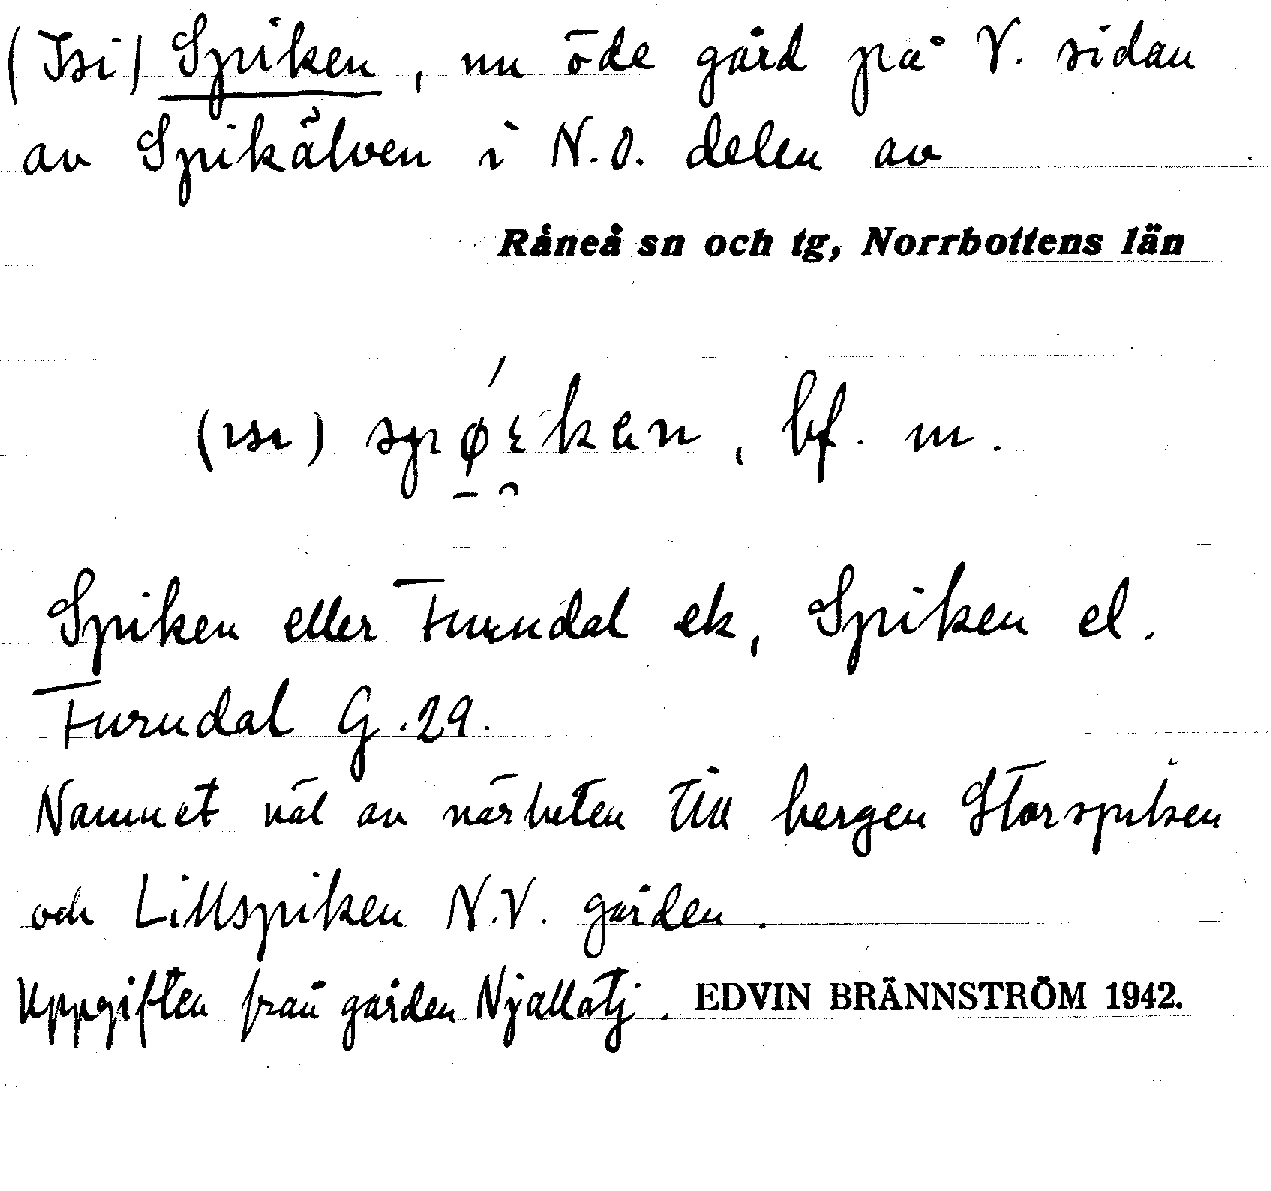 (Isi) Spiken, nu öde gård på V. sidan
av Spikälven i N.O. delen av
Råneå sn och tg, Norrbottens län
(ısı) spǿıkɐn, bf. m.
Spiken eller Furudal ek, Spiken el.
Furudal G. 29.
Namnet väl av närheten till bergen Storspiken
och Lillspiken N.V. gården.
Uppgiften från gården Njallatj. EDVIN BRÄNNSTRÖM 1942.